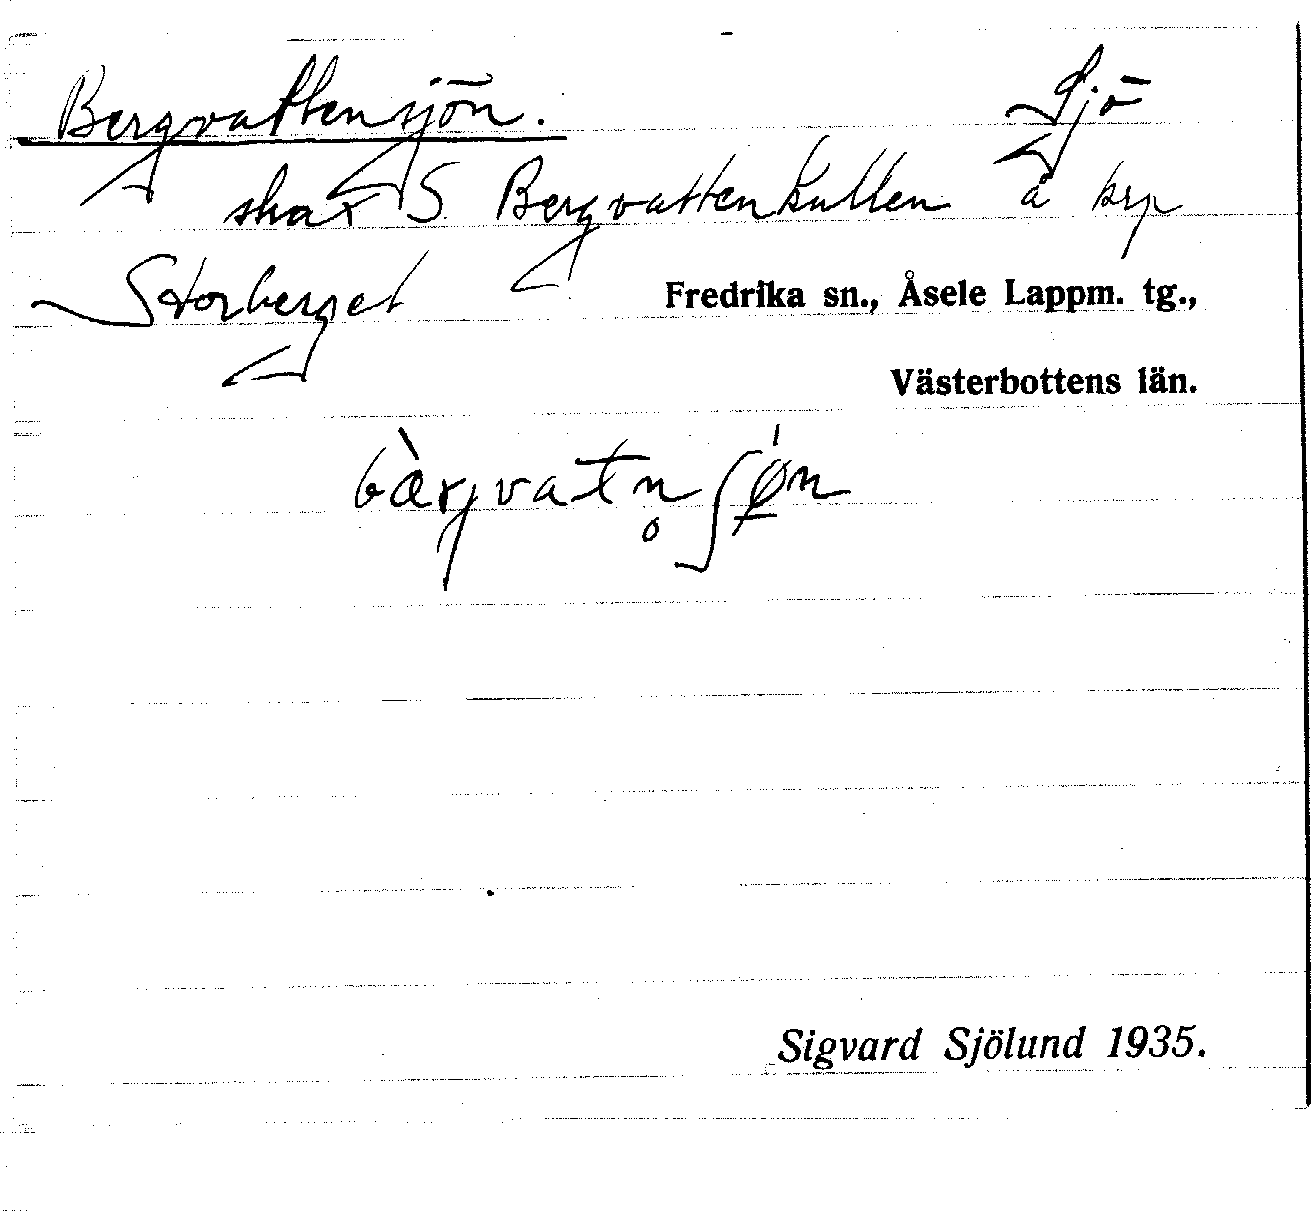 Bergvattensjön. Sjö
skax S. Bergvattenkullen å krp
Storberget
Fredrika sn., Åsele Lappm. tg.,
Västerbottens län.
bærjvatn̥ʃøn
Sigvard Sjölund 1935.